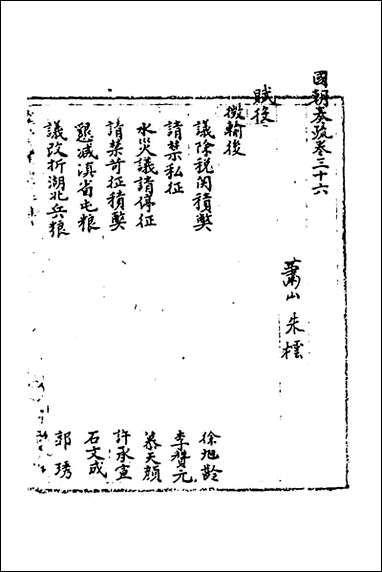 國朝奏疏卷三十六
蕭山 朱橒
賦役
徵輸後
議除稅閏積獘 徐旭齡
請禁私征 李贊元
水災議請停征 慕天顏
請禁苛征積獘 許承宣
懇減滇省屯粮 石文成
議改折湖北兵粮 郭琇